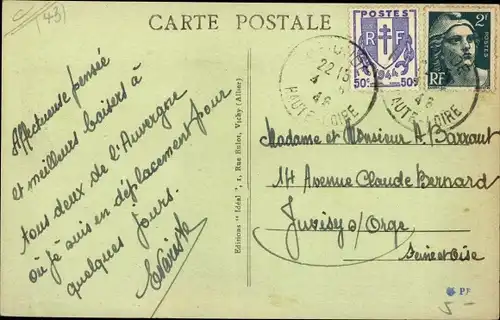 (43)
CARTE POSTALE
POSTES
RF
1944
50c 50c
2F
POSTES
RF
22 15
4
46
HAUTE-LOIRE
46
HAUTE-LOIRE
Affectueuse pensée
et meilleurs baisers à
tous deux de l'Auvergne
où je suis en déplacement pour
quelques jours.
Evariste
Editions "Idéal", 1, Rue Enlot, Vichy (Allier)
Madame et Monsieur A. Barraut
14 Avenue Claude Bernard
Juvisy s/ Orge
Seine et Oise
PF
5-